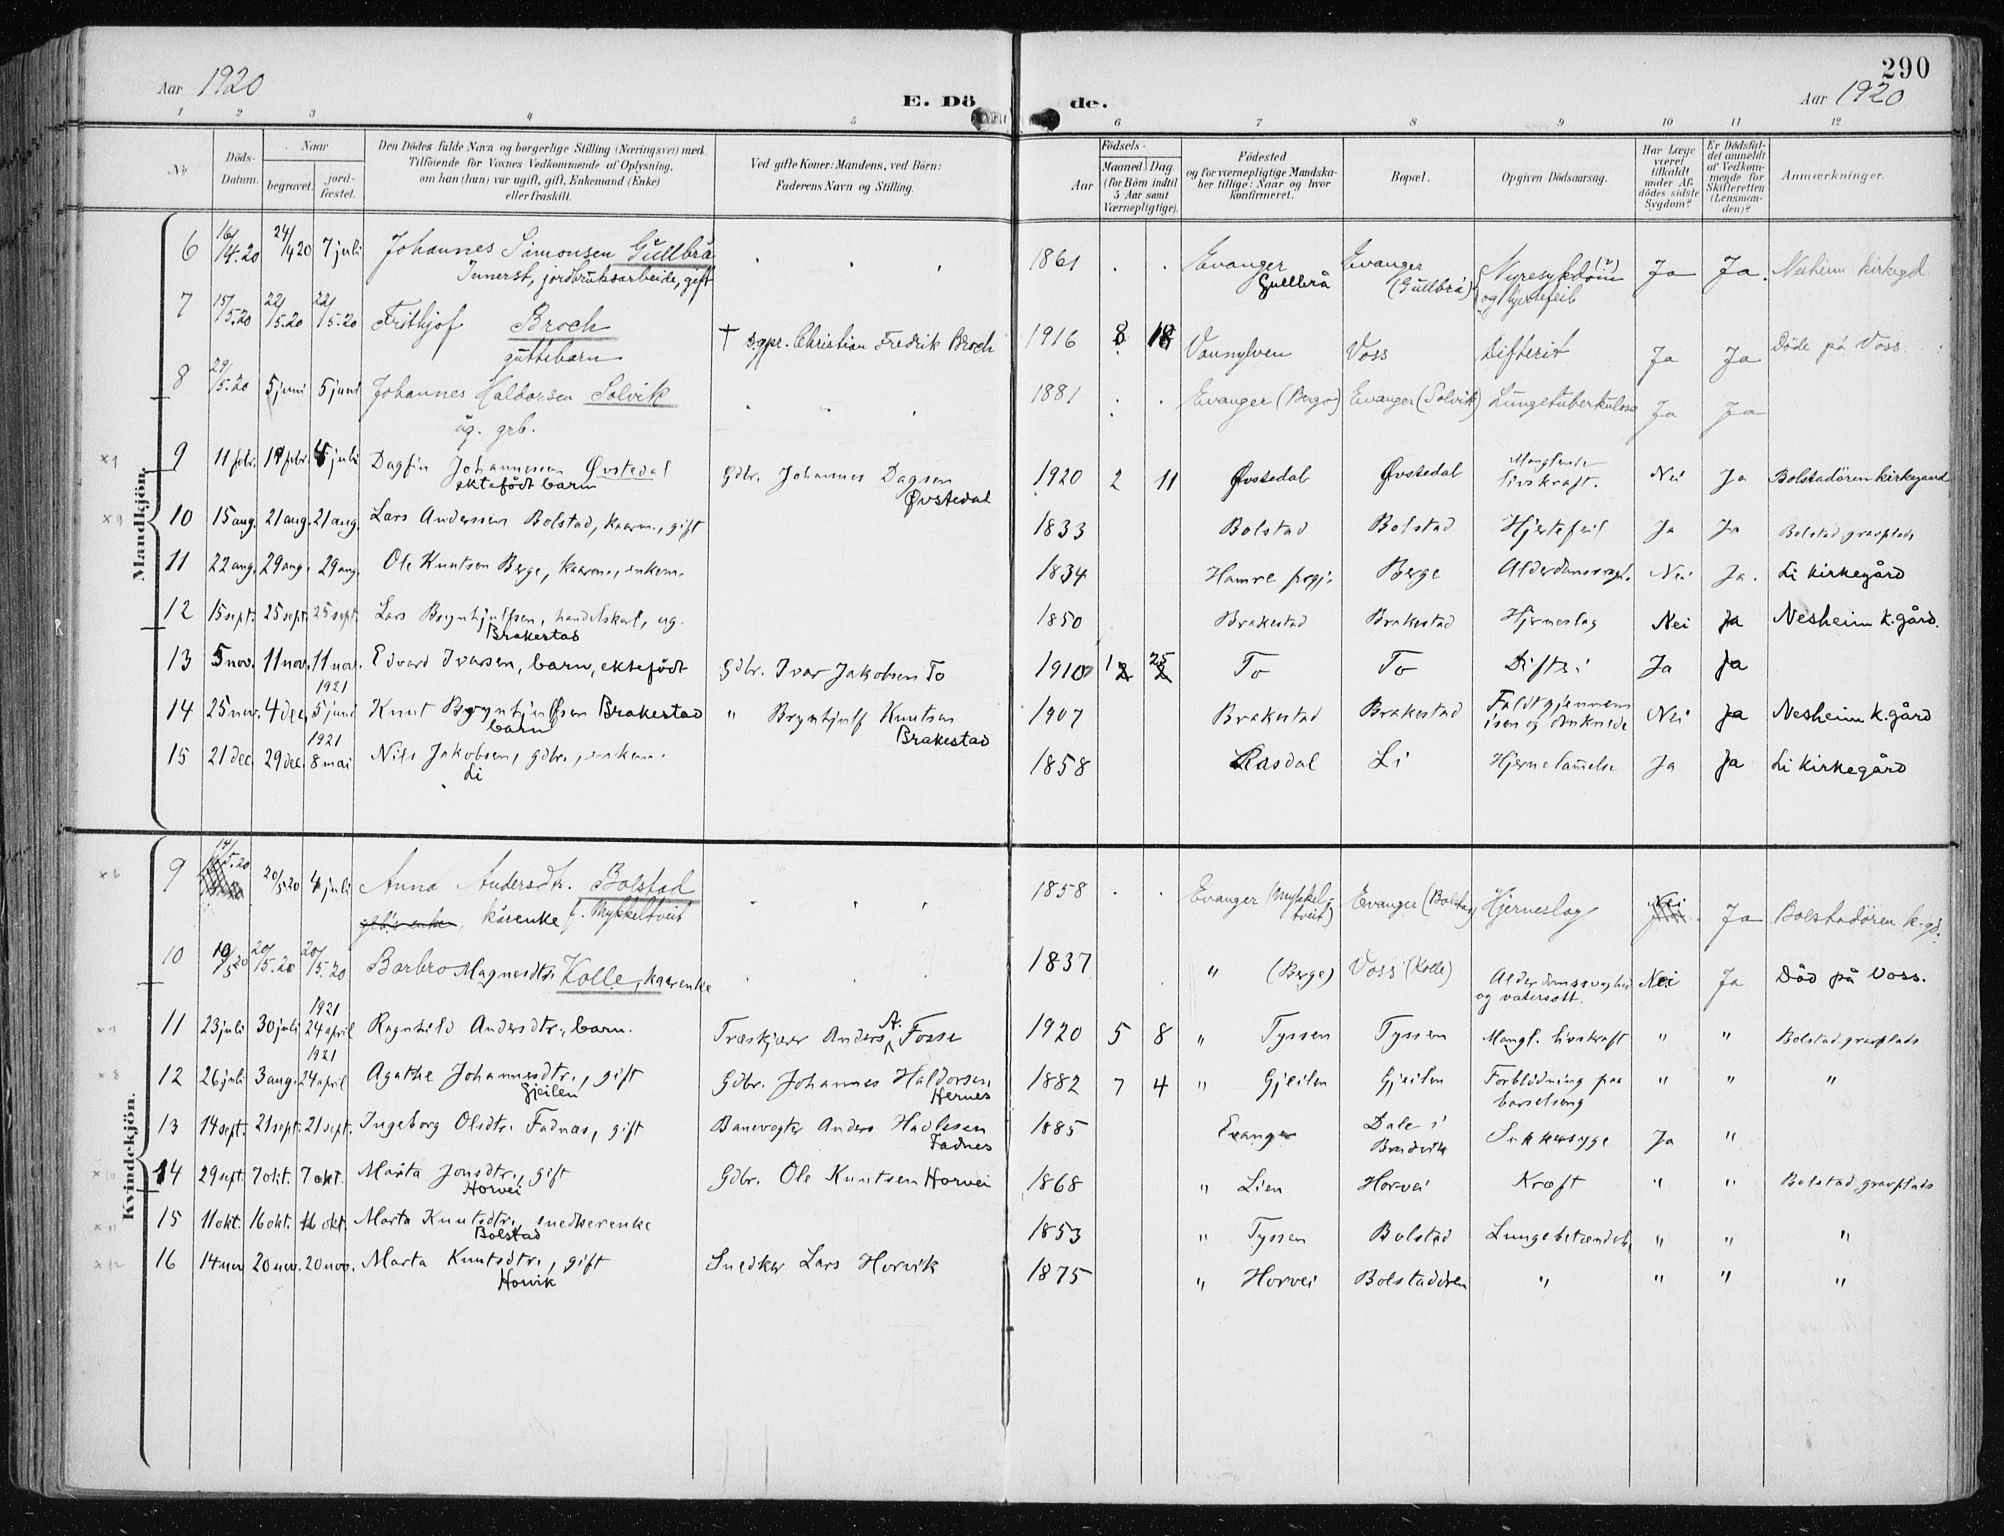 290
Aar 1920
E. Dö de.
Aar 1920
1 2 3 4 5 6 7 8 9 10 11 12
No
Döds-Datum.
Naar
begravet.
jord-fæstet.
Den Dödes fulde Navn og borgerlige Stilling (Næringsvei) med
Tilföiende for Voxnes Vedkommende af Oplysning,
om han (hun) var ugift, gift, Enkemand (Enke)
eller fraskilt.
Ved gifte Koner: Mandens, ved Börn:
Faderens Navn og Stilling.
Födsels-
Aar
Maaned Dag
(for Börn indtil
5 Aar samt
Værnepligtige).
Födested
og for værnepligtige Mandska-
ber tillige: Naar og hvor
konfirmeret.
Bopæl.
Opgiven Dödsaarsag.
Har Læge
været
tilkaldt
under Af-
dödes sidste
Sygdom?
Er Dödsfal-
det anmeldt
af Vedkom-
mende for
Skifteretten
(Lensman-
den)?
Anmærkninger.
Mandkjön.
6 16/4.20 24/4 20 7 juli Johannes Simonsen Gullbrå . . . 1861 . . Evanger Evanger Nyresykdom (?) Ja Ja. Nesheim kirkegd.
Innerst, jordbruksarbeide, gift Gullbrå (Gullbrå) og hjertefeil
7 15/5.20 22/5.20 22/5.20 Frithjof Broch † sgpr. Christian Fredrik Broch 1916 8 18 Vannylven Voss Difterit Ja Ja Döde på Voss.
guttebarn
8 29/5.20 5 juni 5 juni Johannes Haldorsen Solvik . . . 1881 . . Evanger (Berge) Evanger (Solvik) Lungetuberkulose Ja Ja
ug. grb.
x 9 11 febr. 19 febr. 4 juli Dagfin Johannessen Øvstedal Gdbr. Johannes Dagsen 1920 2 11 Øvstedal Øvstedal Manglende Nei Ja Bolstadören kirkegaard
ektefödt barn Øvstedal livskraft.
x 9 10 15 aug. 21 aug. 21 aug. Lars Anderssen Bolstad, kaarm., gift 1833 Bolstad Bolstad Hjertefeil Ja Ja Bolstad gravplads
11 22 aug. 29 aug. 29 aug. Ole Knutsen Berge, kaarm., enkem. 1834 Hamre prgj. Berge Alderdomssvagh. Nei Ja. Li kirkegård
12 15 sept. 25 sept. 25 sept. Lars Brynhjulfsen, handelskarl, ug. 1850 Brakestad Brakestad Hjerneslag Nei Ja Nesheim k.gård.
Brakestad
13 5 nov. 11 nov. 11 nov. Edvard Ivarsen, barn, ektefödt Gdbr. Ivar Jakobsen To 1910 1 25 To To Difteri Ja Ja
1921
14 25 nov. 4 dec. 5 juni Knut Brynhjulfsen Brakestad " Brynhjulf Knutsen 1907 Brakestad Brakestad Faldt gjennem Nei Ja Nesheim k.gård
barn Brakestad isen og druknede
1921
15 21 dec. 29 dec. 8 mai Nils Jakobsen, gdbr., enkem. 1858 Rasdal Li Hjernelammelse Ja Ja Li kirkegård
Li
Kvindekjön.
x 6 9 14/5.20 20/5 20 4 juli Anna Andersdtr. Bolstad . . . 1858 . . Evanger (Mykkel- Evanger (Bolstad) Hjerneslag Nei Ja Bolstadören k.gd.
gbr's enke, kårenke f. Mykkeltveit tveit)
10 10/5 20 20/5.20 20/5.20 Barbro Magnesdtr. Kolle, kaarenke . . 1837 . . " (Berge) Voss (Kolle) Alderdomssvaghed Nei Ja Död på Voss.
og vatersott.
1921
x 7 11 23 juli 30 juli 24 april Ragnhild Andersdtr., barn. Træskjærer Anders A. Fosse 1920 5 8 " Tyssen Tyssen Mangl. livskraft " " Bolstad gravplads
1921
x 8 12 26 juli 3 aug. 24 april Agathe Johannesdtr., gift Gdbr. Johannes Haldorsen 1882 7 4 " Gjeilen Gjeilen Forblödning paa " " "
Gjeilen Hernes barselseng
13 14 sept. 21 sept. 21 sept. Ingeborg Olsdtr. Fadnes, gift Banevogter Anders 1885 Evanger Dale i Sukkersyge Ja "
Fadnes Bruvik
x 10 14 29 sept. 7 okt. 7 okt. Marta Jonsdtr., gift Gdbr. Ole Knutsen Horvei 1868 " Lien Horvei Kræft " " Bolstad gravplads
Horvei
x 11 15 11 okt. 16 okt. 16 okt. Marta Knutsdtr., snedkerenke 1853 " Tyssen Bolstad Lungebetændelse " " "
Bolstad
x 12 16 14 nov 20 nov. 20 nov. Marta Knutsdtr., gift Snedker Lars Horvik 1875 " Horvei Bolstadören " " " "
Horvik